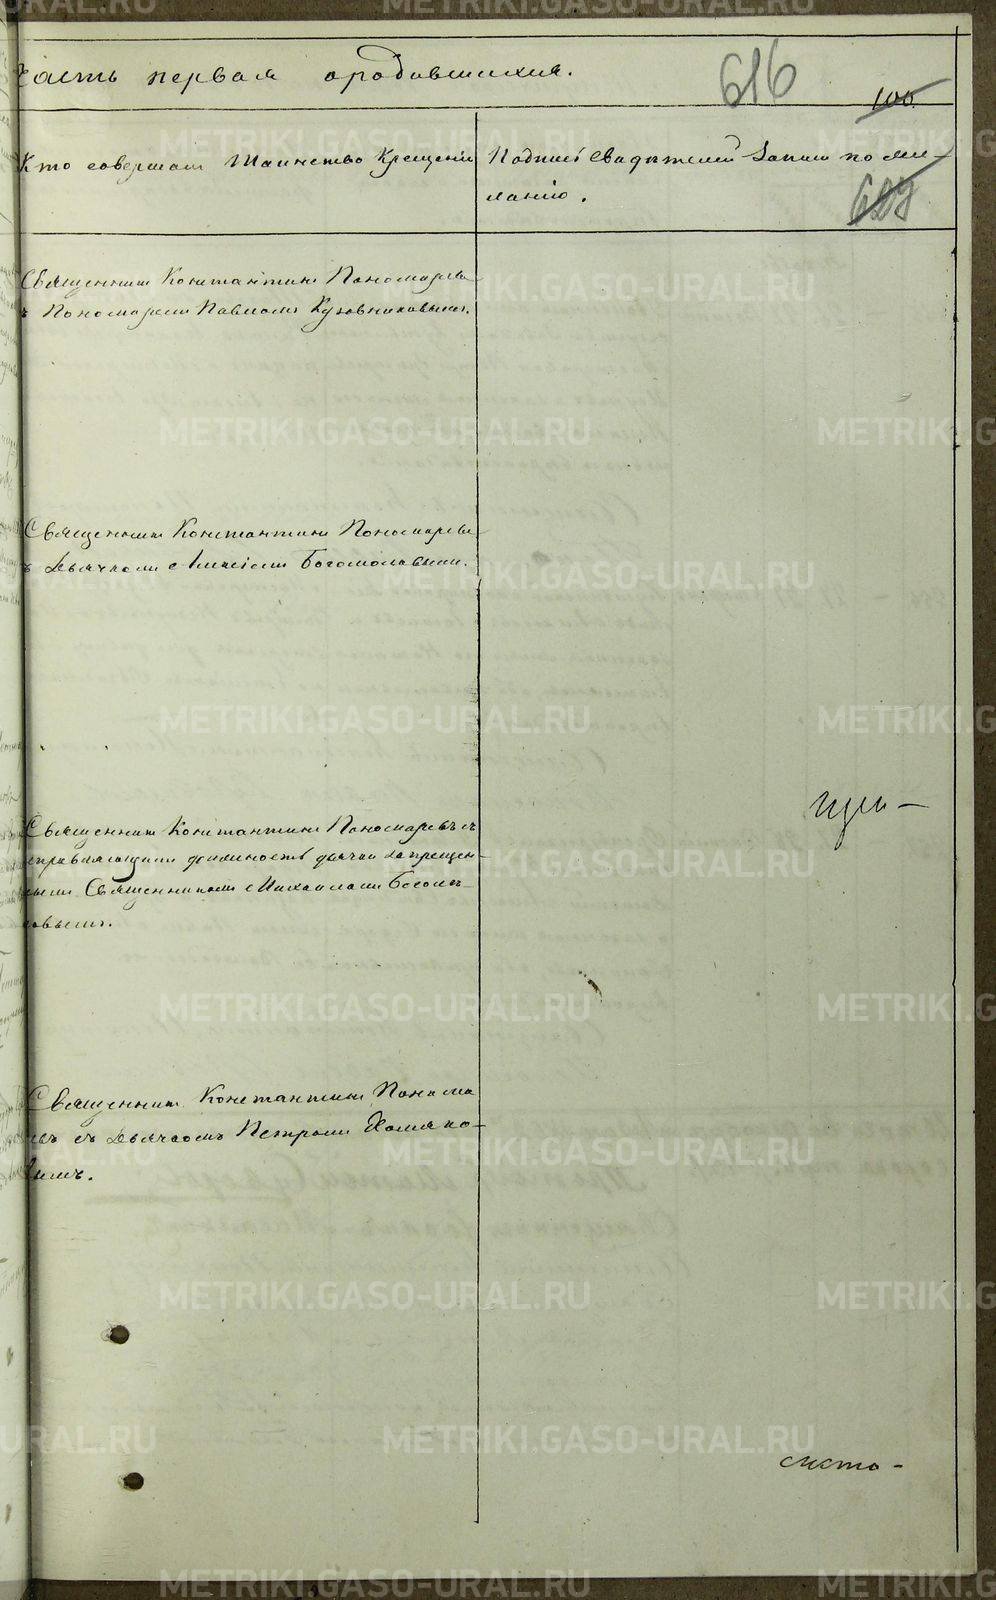 Часть первая ородившихся.
616
100
Кто совершал Таинство Крещенія
Подпись Свидѣтелей Записи по же-
ланію.
Священник Константин Пономарев
Пономарем Павлом Кузовниковым.
Священник Константин Пономарев
Дьячком Алексiем Богомоловым.
Священник Константин Пономаревъ съ
справляющим должность дьячка запрещен-
ным Священником Михаилом Богомо-
ловымъ.
Священник Константин Понома
евъ съ Дьячкомъ Петром Хомяко-
вымъ.
листо-
METRIKI.GASO-URAL.RU